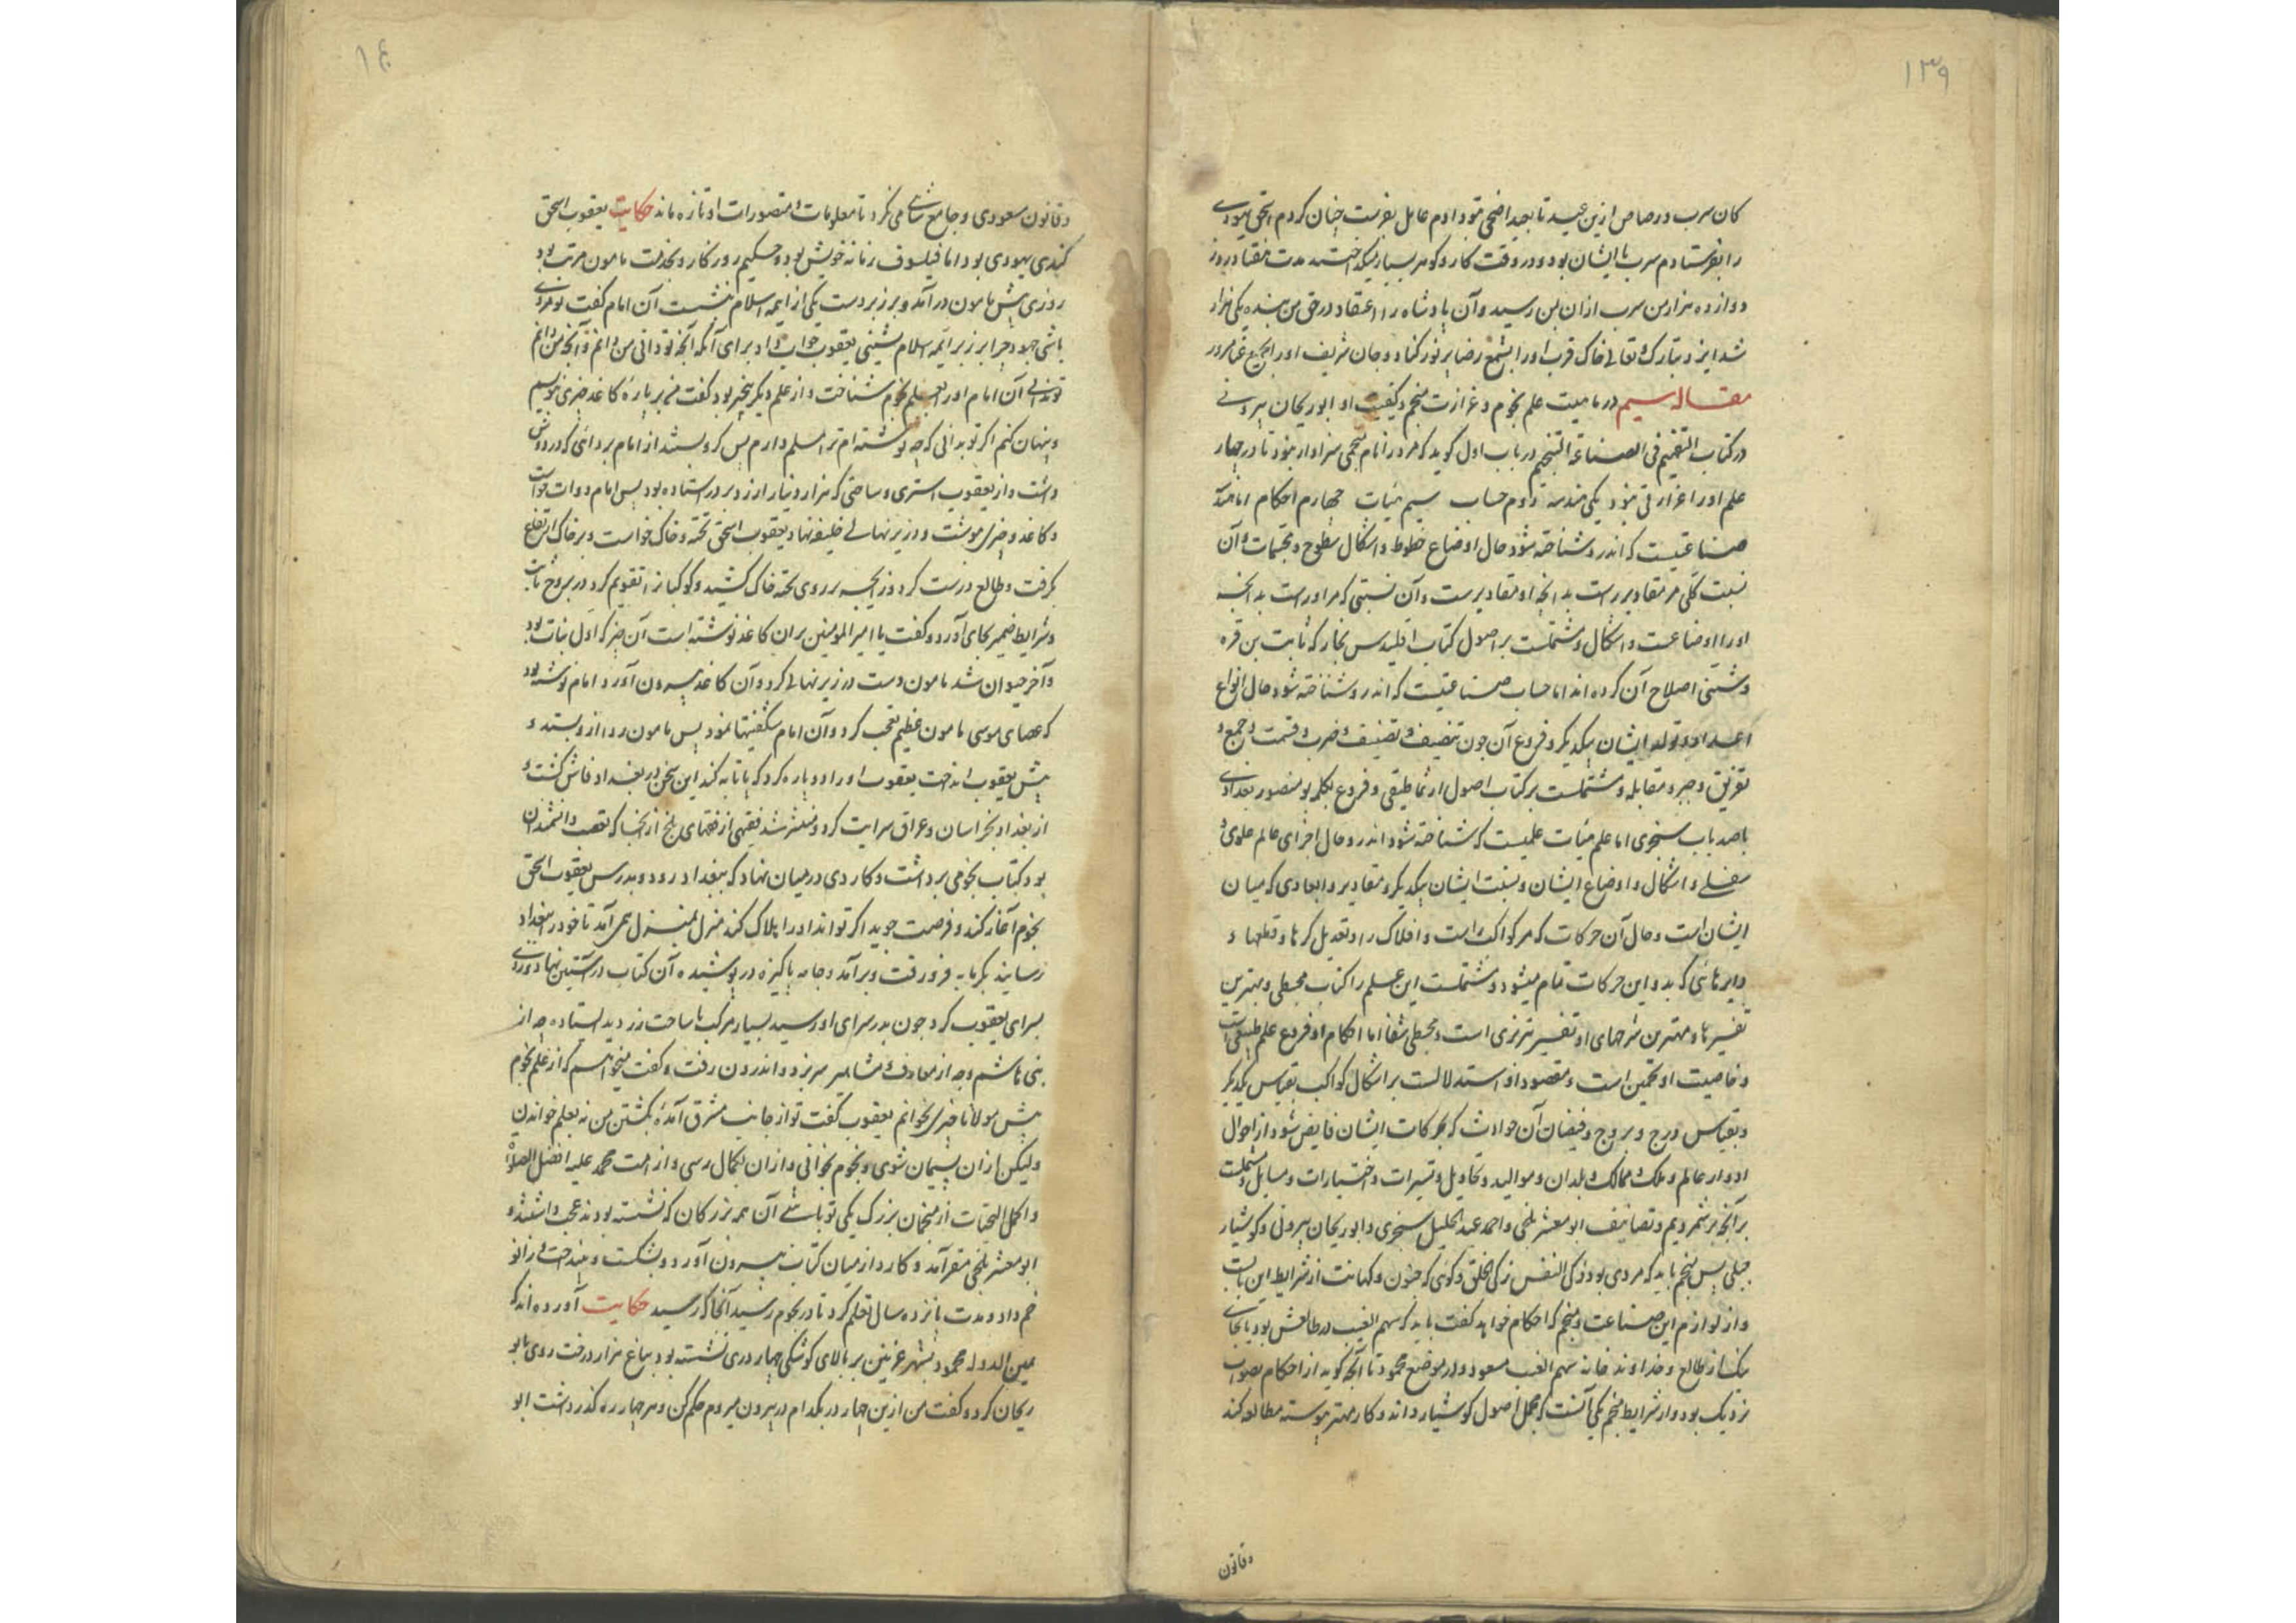 ۱۳۹
کان سرب و رصاص ازین عید تا بعید اضحی بتو دادم عامل بفرست چنان کردم اسحق یهودی
را بفرستادم سرب با ایشان بود و در وقت کار و گوهر بسیار میگداختند مدت هفتاد روز
دوازده هزار من سرب از ان بمن رسید و آن پادشاه را اعتقاد در حق من بنده یکی هزار
شد ایزد تبارک و تعالی خاک قرب او را بشمع رضا پرنور کناد و جان شریف او را بجمع غنا مسرور
مقاله سیم در ماهیت علم نجوم و غزارت منجم و کیفیت او ابو ریحان بیرونی
در کتاب التفهیم فی الصناعة التنجیم در باب اول گوید که مرد را نام منجمی سزاوار نبود تا در چهار
علم او را غزارتی نبود یکی هندسه دوم حساب سیم هیات چهارم احکام اما هندسه
صناعتیست که اندر و شناخته شود حال اوضاع خطوط و اشکال سطوح و مجسمات و آن
نسبت کلی مر مقادیر راست بدانچه او مقادیرست و آن نسبتی که مر او راست بدانچه
او را اوضاعست و اشکال و مشتملست بر اصول کتاب اقلیدس نجار که ثابت بن قره
و شیئی اصلاح آن کرده اند اما حساب صناعتیست که اندر و شناخته شود حال انواع
اعداد و تولد ایشان یکدیگر و فروع آن چون تنصیف و تضعیف و ضرب و قسمت و جمع و
تفریق و جبر و مقابله و مشتملست بر کتاب اصول ارثماطیقی و فروع تکمله بو منصور بغدادی
با صد باب سجزی اما علم هیات علمیست که شناخته شود اندر و حال اجزای عالم علوی و
سفلی و اشکال و اوضاع ایشان و نسبت ایشان یکدیگر و مقادیر و ابعادی که میان
ایشان است و حال آن حرکات که مر کواکب راست و افلاک را و تعدیل کرها و قطبها و
دایرهائی که بدو این حرکات تمام میشود و مشتملست این علم را کتاب مجسطی و بهترین
تفسیرها و بهترین شرحهای او تفسیر تبریزی است و مجسطی شفا اما احکام او فروع علم طبیعی است
و خاصیت او تخمین است و مقصود از و استدلالست بر اشکال کواکب بقیاس یکدیگر
و بقیاس درج و بروج و فیضان آن حوادث که بحرکات ایشان فایض شود از احوال
ادوار عالم و ملک و ممالک و بلدان و موالید و تحاویل و تسییرات و اختیارات و مسایل و مشتملست
بر آنچه برشمردیم و تصانیف ابو معشر بلخی و احمد عبدالجلیل سجزی و ابو ریحان بیرونی و کوشیار
جیلی پس منجم باید که مردی بود زکی النفس زکی الخلق و گوئی که جنون و کهانت از شرایط این بابست
و از لوازم این صناعت و منجم که احکام خواهد گفت باید که سهم الغیب در طالعش بود یا بجای
نیک از طالع و خداوند خانه سهم الغیب مسعود و در موضع محمود تا آنچه گوید از احکام بصواب
نزدیک بود و از شرایط منجم یکی آنست که مجمل اصول کوشیار داند و کار مهتر پیوسته مطالعه کند
وقانون
۱۴
وقانون مسعودی و جامع شاهی می نگرد تا معلومات و متصورات او تازه ماند حکایت یعقوب اسحق
کندی یهودی بود اما فیلسوف زمانه خویش بود و حکیم روزگار و بخدمت مامون مرتب بود
روزی پیش مامون درآمد و بر زبر دست یکی از ایمه اسلام بنشست آن امام گفت تو مردی
باشی جهود چرا بر زبر ایمه اسلام نشینی یعقوب جواب داد برای آنکه آنچه تو دانی من دانم و آنچه من دانم
تو ندانی آن امام او را بعلم نجوم شناخت و از علم دیگر بیخبر بود گفت من بر پاره کاغذ چیزی نویسم
و پنهان کنم اگر تو بدانی که چه نوشته ام ترا مسلم دارم پس گرو بستند از امام بردائی که در دوش
داشت و از یعقوب استری و ساختی که هزار دینار ارزد بر در استاده بود پس امام دوات خواست
و کاغذ و چیزی بنوشت و در زیر نهالی خلیفه نهاد یعقوب اسحق تخته و خاک خواست و بر خاک ارتفاع
گرفت و طالع درست کرد و زایجه بر روی تخته خاک کشید و کوکبانرا تقویم کرد و در بروج ثابت
و شرایط ضمیر بجای آورد و گفت یا امیر المومنین بران کاغذ نوشته است آن چیز که اول نبات بود
و آخر حیوان شد مامون دست در زیر نهالی کرد و آن کاغذ بیرون آورد امام نوشته بود
که عصای موسی مامون عظیم تعجب کرد و آن امام شگفتیها نمود پس مامون ردا ازو بستد و
پیش یعقوب انداخت یعقوب او را دوپاره کرد که پاتابه کند این سخن در بغداد فاش گشت و
از بغداد بخراسان و عراق سرایت کرد و منتشر شد فقیهی از فقهای بلخ از آنجا که تعصب دانشمندان
بود کتاب نجومی برداشت و کاردی در میان نهاد که ببغداد رود و بدرس یعقوب اسحق
نجوم آغاز کند و فرصت جوید اگر تواند او را هلاک کند منزل بمنزل همی آمد تا خود را ببغداد
رسانید بگرمابه فرو رفت و برآمد و جامه پاکیزه در پوشیده آن کتاب در آستین نهاد و روی
بسرای یعقوب کرد چون بدر سرای او رسید بسیار مرکب با ساخت زر دید ایستاده چه از
بنی هاشم و چه از معارف و مشاهیر سر بزد و اندرون رفت و گفت میخواهم که از علم نجوم
پیش مولانا چیزی بخوانم یعقوب گفت تو از جانب مشرق آمدهٔ بکشتن من نه بعلم خواندن
ولیکن از ان پشیمان شوی و نجوم بخوانی و از ان بکمال رسی و از امت محمد علیه افضل الصلوة
و اکمل التحیات از منجمان بزرگ یکی تو باشی آن همه بزرگان که نشسته بودند عجب داشتند و
ابو معشر بلخی مقر آمد و کارد از میان کتاب بیرون آورد و بشکست و بینداخت و زانو
خم داد و مدت پانزده سال تعلم کرد تا در نجوم رسید آنجا که رسید حکایت آورده اند که
یمین الدوله محمود بشهر غزنین بر بالای کوشکی چهار دری نشسته بود بباغ هزار درخت روی بابو
ریحان کرد و گفت من ازین چهار در بکدام در بیرون میروم حکم کن و هر چهار ره گذر داشت ابو